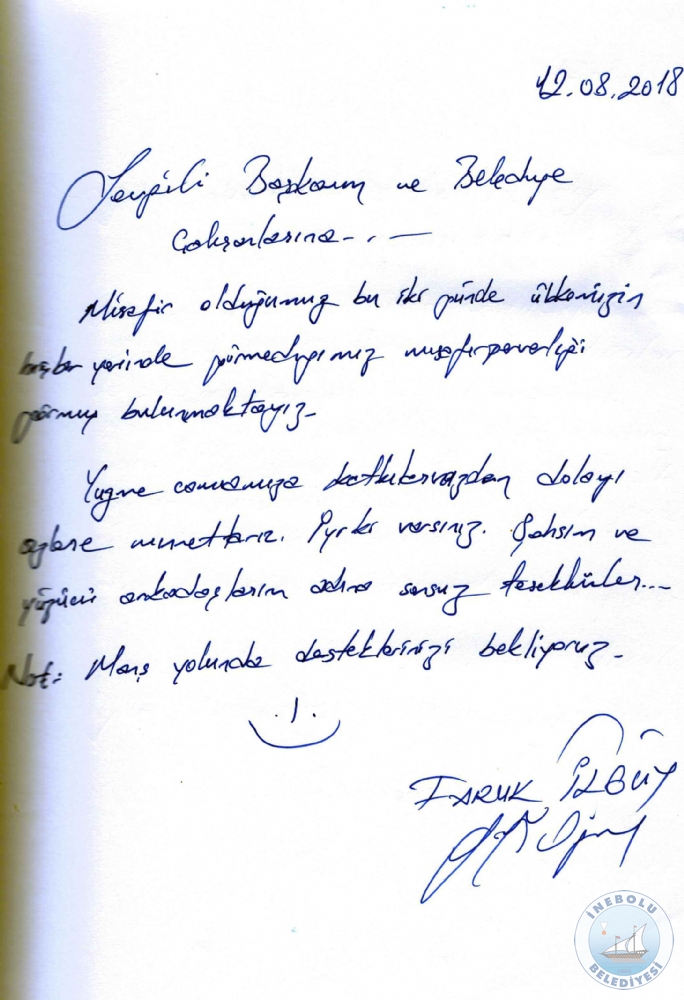 12.08.2018
Sevgili Başkanım ve Belediye
Çalışanlarına...—
Misafir olduğumuz bu iki günde ülkemizin
başka yerinde görmediğimiz misafirperverliği
görmüş bulunmaktayız.
Yüzme camiamıza katkılarınızdan dolayı
sizlere minnettarız. İyi ki varsınız. Şahsım ve
yüzücü arkadaşlarım adına sonsuz teşekkürler...
Not: Manş yolunda desteklerinizi bekliyoruz.
FARUK
İNEBOLU
BELEDİYESİ